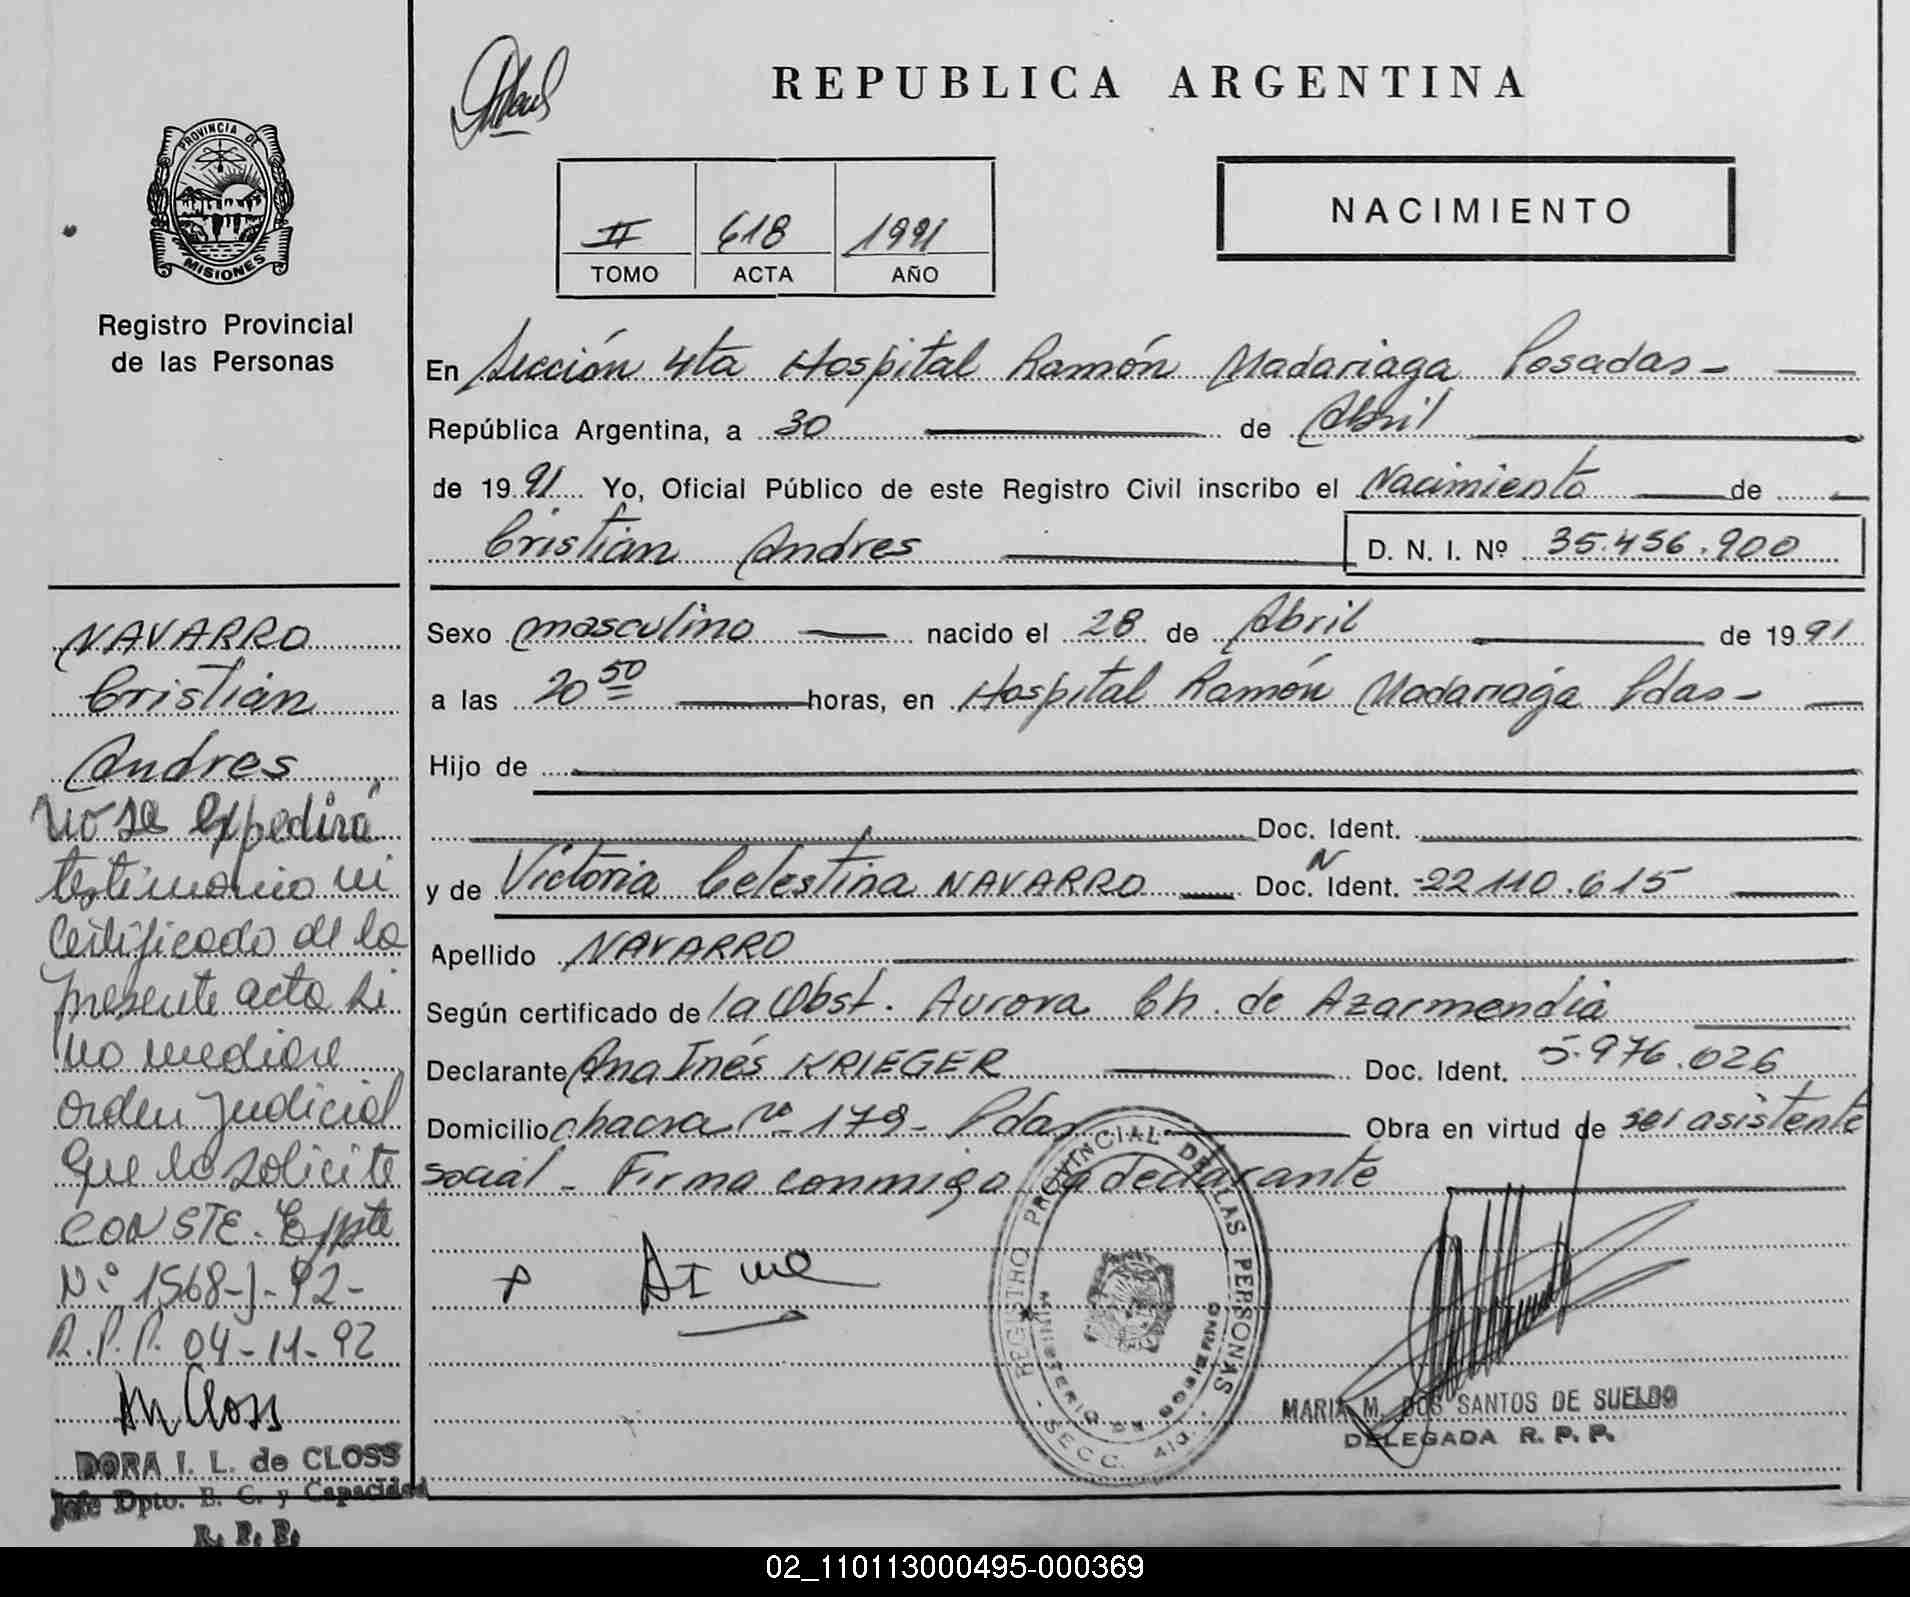 REPUBLICA ARGENTINA
PROVINCIA DE
MISIONES
Registro Provincial
de las Personas
II 618 1991
TOMO ACTA AÑO
NACIMIENTO
En Sección 4ta Hospital Ramón Madariaga Posadas -
República Argentina, a 30 de Abril
de 1991 Yo, Oficial Público de este Registro Civil inscribo el Nacimiento de
Cristian Andres D. N. I. Nº 35.456.900
Sexo masculino nacido el 28 de Abril de 1991
a las 20 50 horas, en Hospital Ramón Madariaga Pdas -
Hijo de
Doc. Ident.
y de Victoria Celestina NAVARRO Doc. N Ident. 22 110.615
Apellido NAVARRO
Según certificado de la Obst. Aurora Ch. de Azarmendia
Declarante Ana Inés KRIEGER Doc. Ident. 5.976.026
Domicilio chacra Nº 179 - Pdas Obra en virtud de ser asistente
social - Firma conmigo la declarante
REGISTRO PROVINCIAL DE LAS PERSONAS
MINISTERIO DE GOBIERNO
- SECC. 4ta. -
MARIA M. DOS SANTOS DE SUELDO
DELEGADA R. P. P.
NAVARRO
Cristian
Andres
No se expedirá
testimonio ni
Certificado de la
presente acta si
no mediare
orden judicial
que lo solicite
CONSTE. Expte
Nº 1568-J-92-
R.P.P. 04-11-92
DORA I. L. de CLOSS
Jefe Dpto. E. C. y Capacidad
R. P. P.
02_110113000495-000369